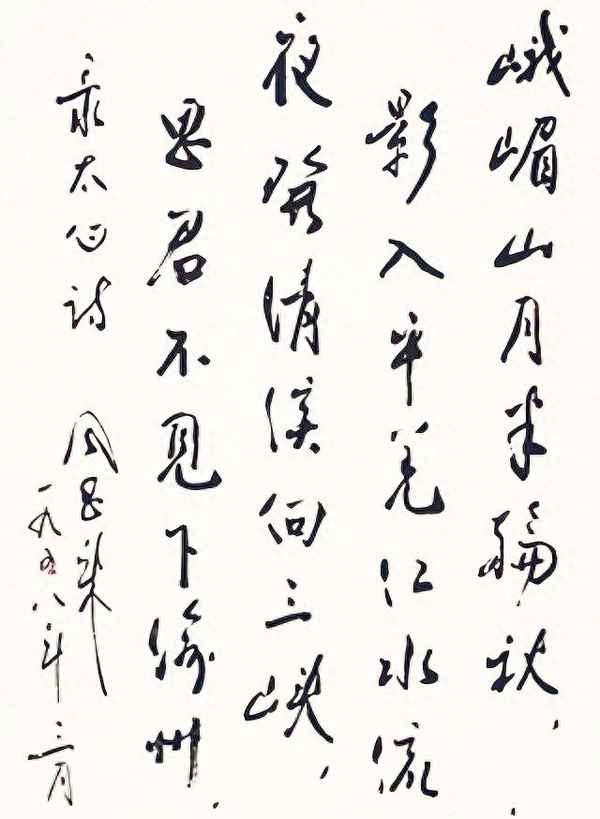 峨嵋山月半輪秋，
影入平羌江水流．
夜發清溪向三峽，
思君不見下渝州．
录太白诗
周恩来
一九五八年三月